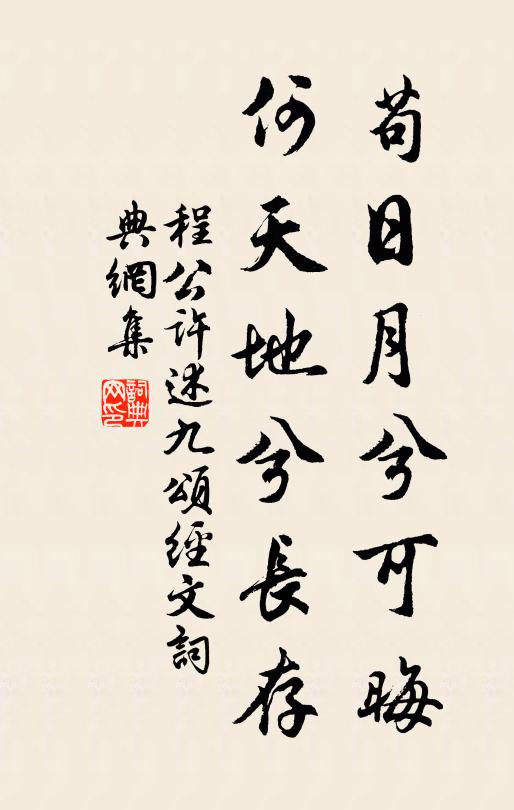 苟日月兮可晦
何天地兮長存
程公許述九頌經文詞
典網集
詞典
网印